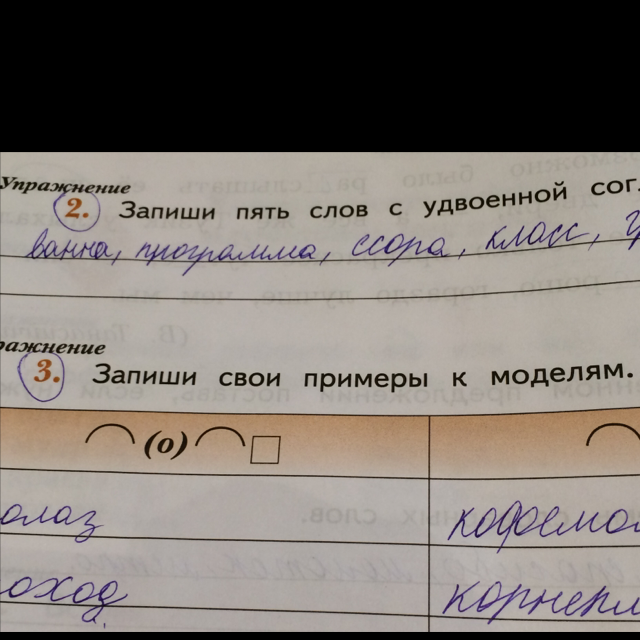 Упражнение
2. Запиши пять слов с удвоенной сог
ванна, программа, ссора, класс,
ражнение
3. Запиши свои примеры к моделям.
(о)
олаз кофемол
оход корнепл